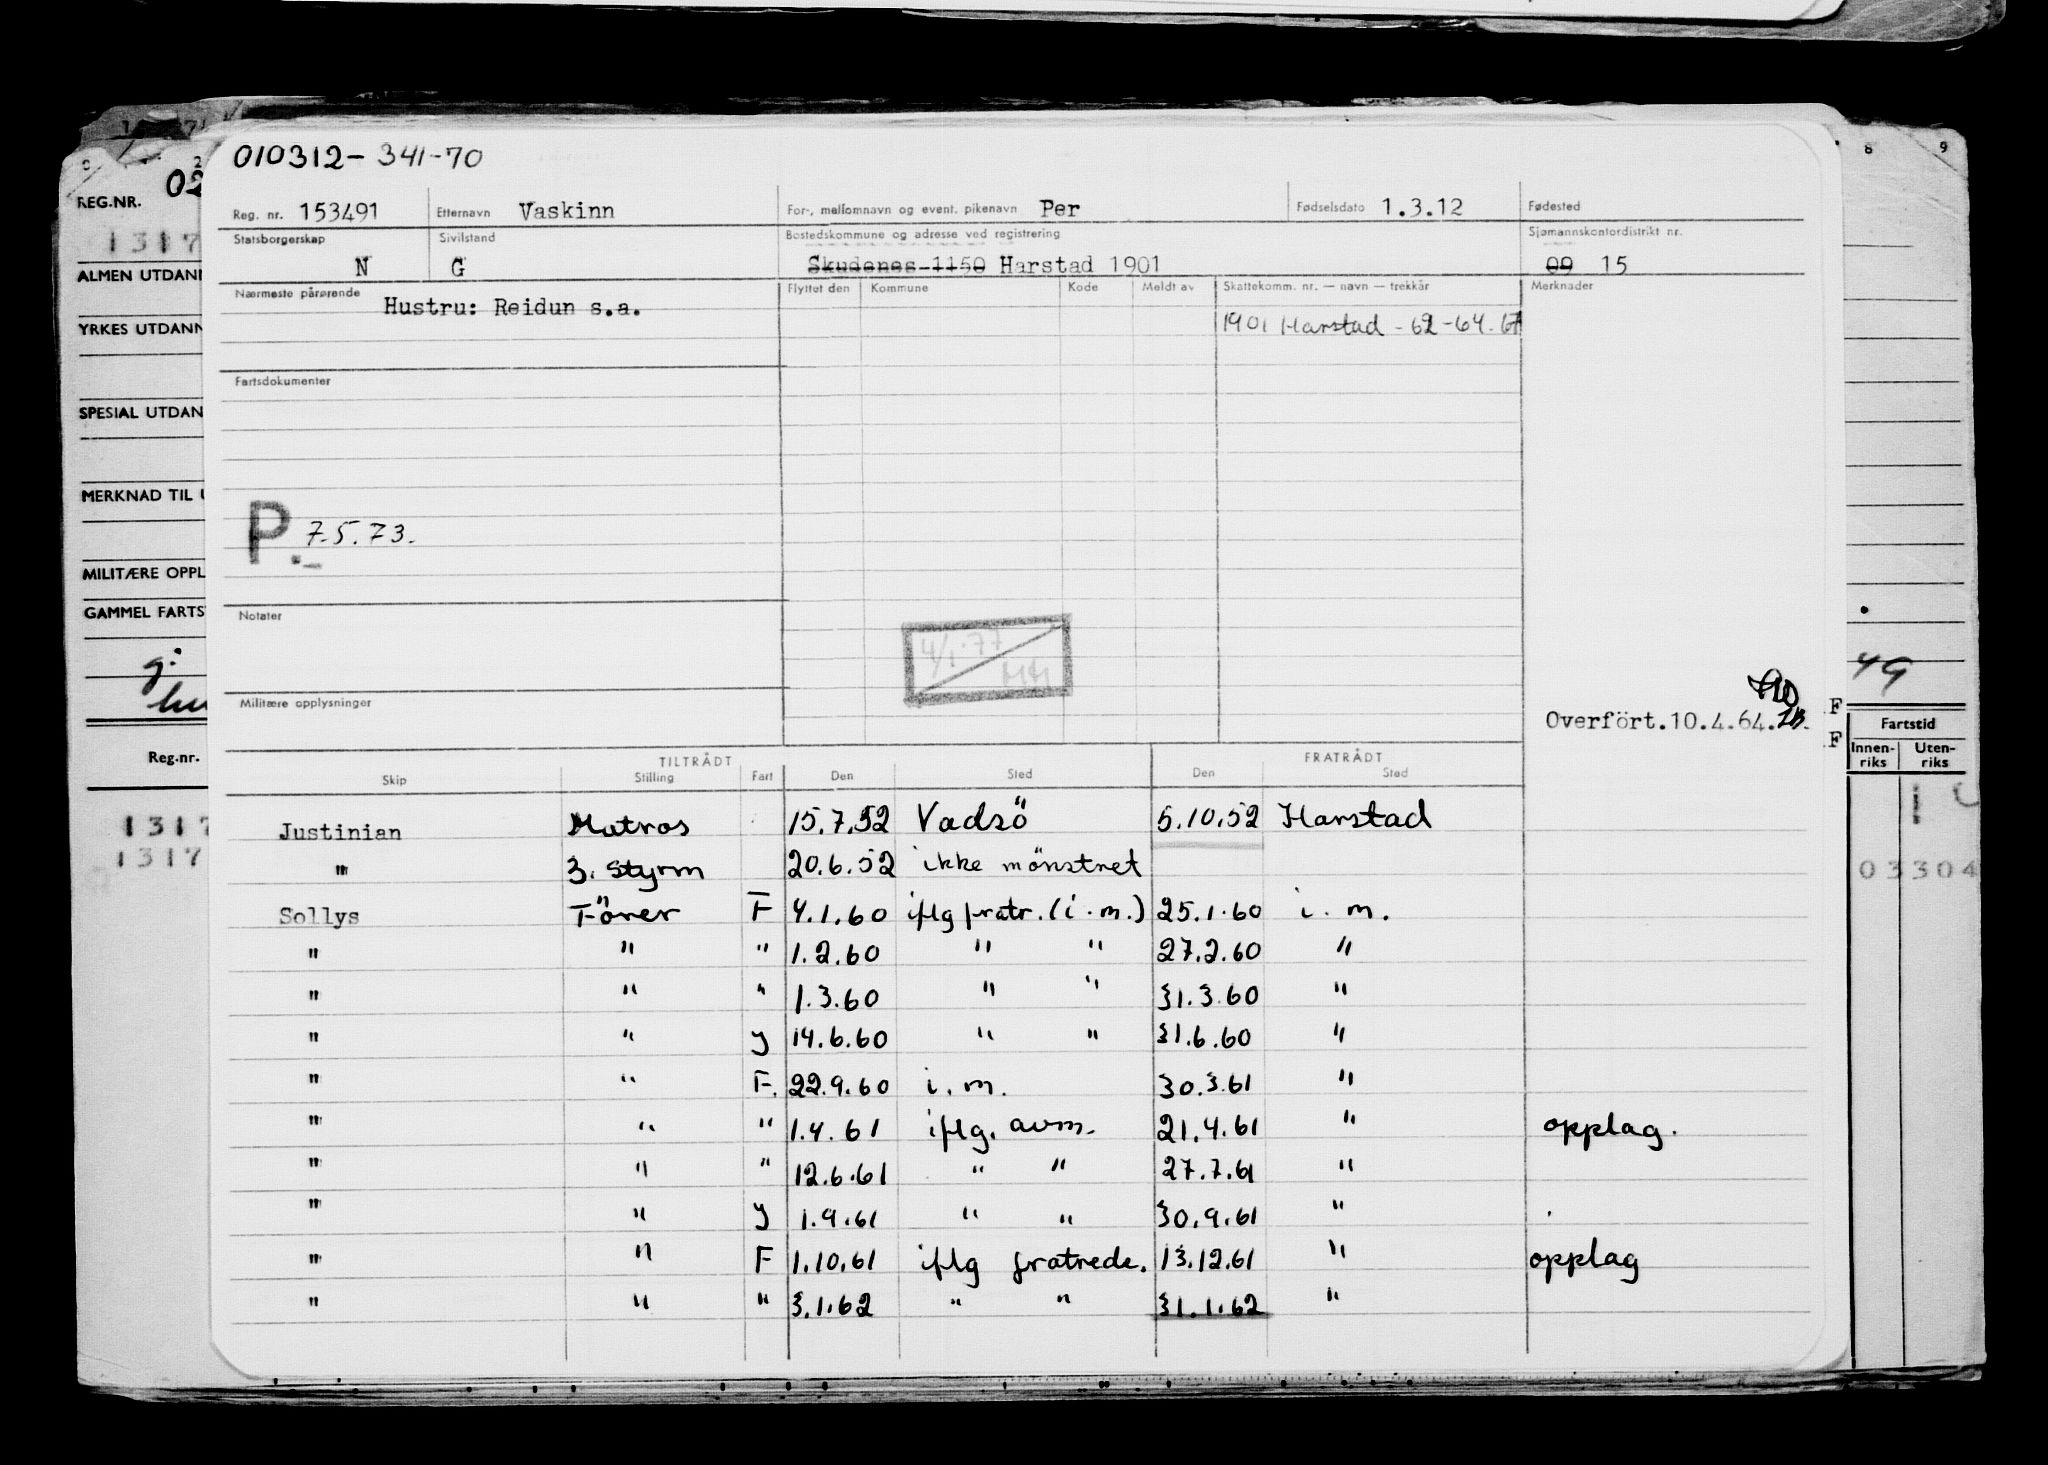 010312-341-70
Reg. nr. 153491 Etternavn Vaskinn For-, mellomnavn og event. pikenavn Per Fødselsdato 1.3.12 Fødested
Statsborgerskap N Sivilstand G Bostedskommune og adresse ved registrering Skudenes 1150 Harstad 1901 Sjømannskontordistrikt nr. 09 15
Nærmeste pårørende Hustru: Reidun s.a. Flyttet den Kommune Kode Meldt av Skattekomm. nr. — navn — trekkår Merknader
1901 Harstad - 62-64.
Fartsdokumenter
P. 7.5.73.
Notater
4/1.77
Militære opplysninger
Overfört.10.4.64.
TILTRÅDT FRATRÅDT
Skip Stilling Fart Den Sted Den Sted
Justinian Matros 15.7.52 Vadsö 5.10.52 Harstad
" 3. Styrm 20.6.52 ikke mönstret
Sollys Förer F 4.1.60 iflg fratr. (i.m.) 25.1.60 i.m.
" " " 1.2.60 " " 27.2.60 "
" " " 1.3.60 " " 31.3.60 "
" " y 14.6.60 " " 31.6.60 "
" " F. 22.9.60 i.m. 30.3.61 "
" " " 1.4.61 iflg. avm. 21.4.61 " opplag.
" " " 12.6.61 " " 27.7.61 "
" " y 1.9.61 " " 30.9.61 "
" " F 1.10.61 iflg fratrede. 13.12.61 " opplag
" " " 3.1.62 " " 31.1.62 "
REG.NR. 02
1317
ALMEN UTDANN
YRKES UTDANN
SPESIAL UTDAN
MERKNAD TIL U
MILITÆRE OPPL
GAMMEL FARTS
g.
Reg.nr.
1317
1317
8 9
49
F
F
Fartstid
Innen-riks Uten-riks
03304